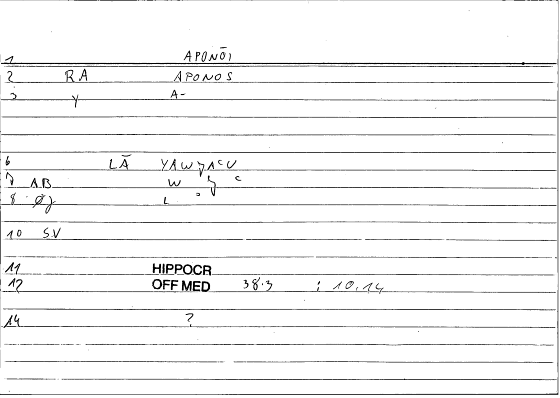 1 APONŌI
2 RA APONOS
3 Y A-
6 LĀ
7 AB W c
8 L
10 SV
11 HIPPOCR
12 OFF MED 38.3 : 10.14
14 ?